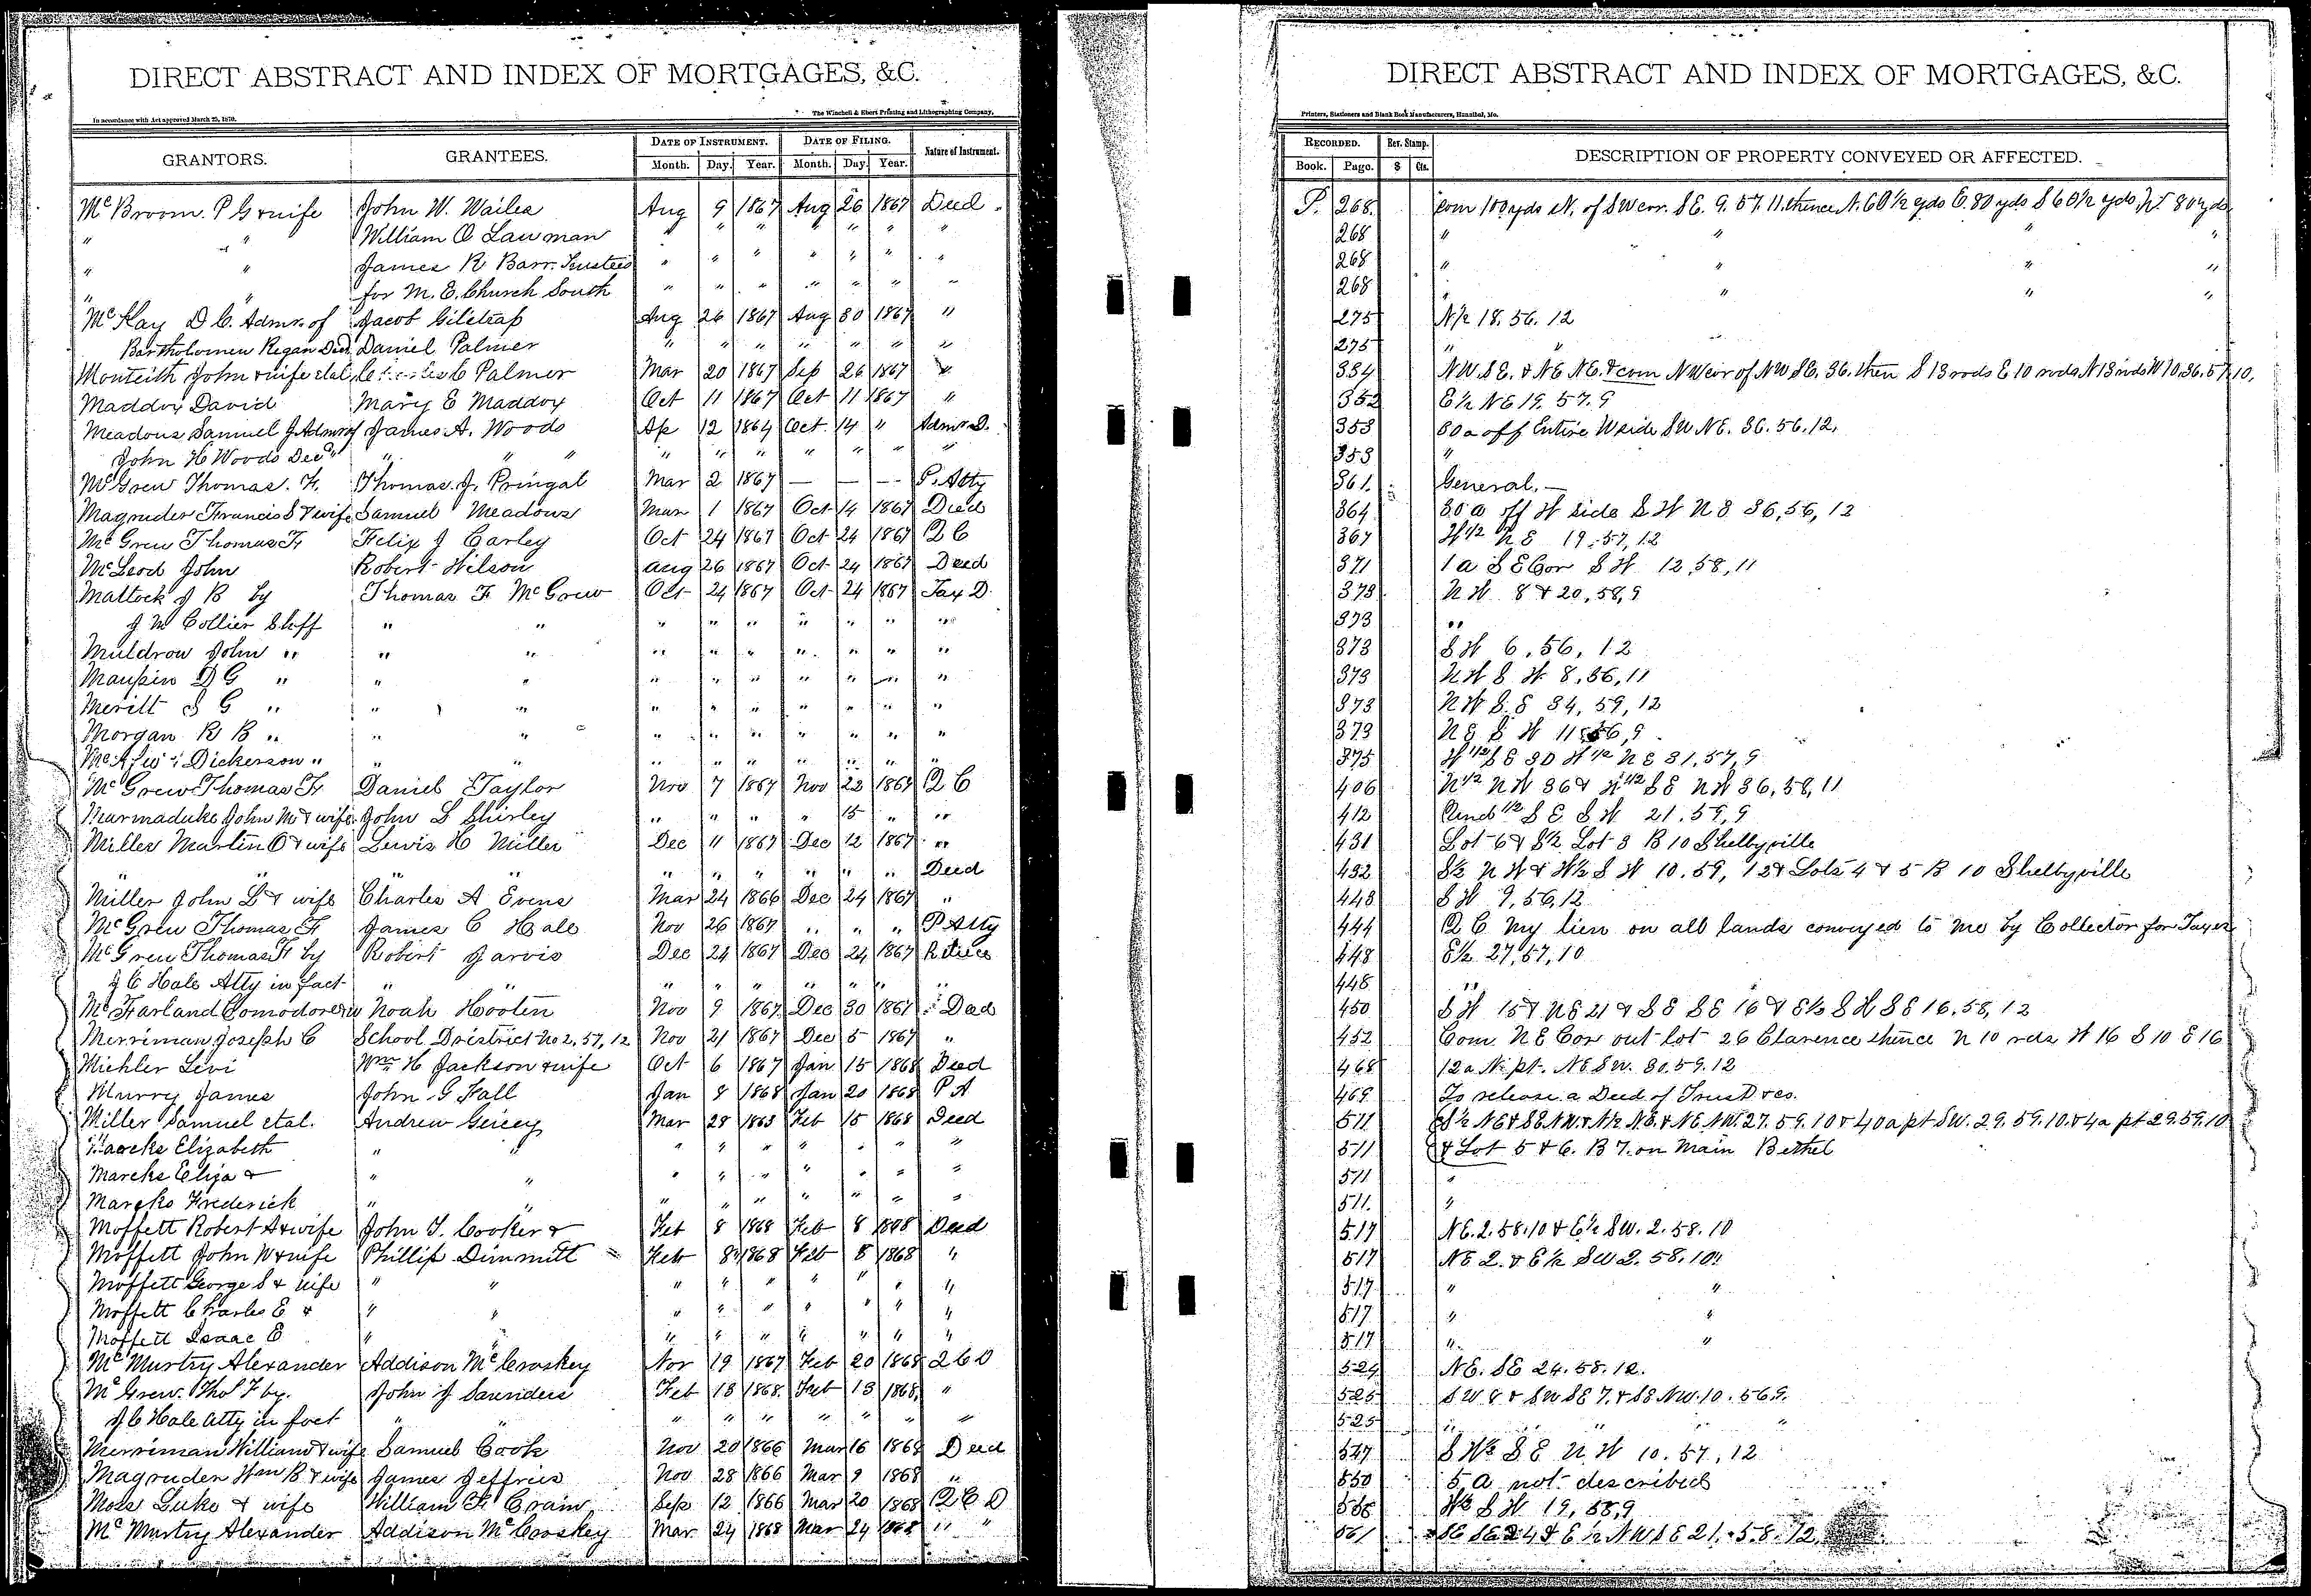 DIRECT ABSTRACT AND INDEX OF MORTGAGES, &C.
In accordance with Act approved March 25, 1870.
The Winchell & Ebert Printing and Lithographing Company,
GRANTORS. GRANTEES. DATE OF INSTRUMENT. DATE OF FILING. Nature of Instrument.
Month. Day. Year. Month. Day. Year.
McBroom. P G & wife John W. Wailes Aug 9 1867 Aug 26 1867 Deed
" " William O Lawman " " " " " " "
" " James R Barr. Trustees " " " " " " "
" " for M. E. Church South " " " " " " "
McKay D C. Admr. of Jacob Gilstrap Aug 26 1867 Aug 30 1867 "
Bartholomew Regan Decd Daniel Palmer " " " " " " "
Monteith John & wife etal Palmer Mar 20 1867 Sep 26 1867 "
Maddox David Mary E Maddox Oct 11 1867 Oct 11 1867 "
Meadows Samuel J Admr of James A. Woods Ap 12 1864 Oct 14 " Admr D.
John H Woods Decd " " " " " " " " " "
McGrew Thomas. F. Thomas. J. Pringal Mar 2 1867 — — — P. Atty
Magruder Francis S & wife Samuel Meadows Mar 1 1867 Oct 14 1867 Deed
McGrew Thomas F Felix J Carley Oct 24 1867 Oct 24 1867 Q C
McLeod John Robert Wilson Aug 26 1867 Oct 24 1867 Deed
Matlock J B by Thomas F McGrew Oct 24 1867 Oct 24 1867 Tax D.
J M Collier Shff " " " " " " " " "
Muldrow John " " " " " " " " " "
Maupin D G " " " " " " " " " "
Merilt S G " " " " " " " " " "
Morgan R B " " " " " " " " " "
Dickerson " " " " " " " " " "
McGrew Thomas F Daniel Taylor Nov 7 1867 Nov 22 1867 Q C
Mearmaduke John M & wife John S Shirley " " " " 15 " "
Miller Martin O & wife Lewis H Miller Dec 11 1867 Dec 12 1867 "
" " " " " " " " " " Deed
Miller John L & wife Charles A Evens Mar 24 1866 Dec 24 1867 "
McGrew Thomas F James C Hale Nov 26 1867 " " " P Atty
McGrew Thomas F by Robert Jarvis Dec 24 1867 Dec 24 1867
J C Hale Atty in fact " " " " " " " " "
McFarland Comodore Noah Hooten Nov 9 1867 Dec 30 1867 Deed
Merriman Joseph C School District No 2, 57, 12 Nov 21 1867 Dec 5 1867 "
Michler Levi Wm H Jackson & wife Oct 6 1867 Jan 15 1868 Deed
Murry James John G Hall Jan 8 1868 Jan 20 1868 P A
Miller Samuel etal. Andrew Gricey Mar 28 1863 Feb 15 1868 Deed
Marcks Elizabeth " " " " " " " " "
Marcks Eliza & " " " " " " " " "
Marcks Frederick " " " " " " " " "
Moffett Robert A & wife John T. Cooker & Feb 8 1868 Feb 8 1868 Deed
Moffett John W & wife Phillip Dimmitt Feb 8 1868 Feb 8 1868 "
Moffett George S & wife " " " " " " " " "
Moffett Charles E & " " " " " " " " "
Moffett Isaac E " " " " " " " " "
McMurtry Alexander Addison McCroskey Nov 19 1867 Feb 20 1868 Q C D
McGrew. Tho F by. John J Saunders Feb 13 1868. Feb 13 1868, "
J C Hale Atty in fact " " " " " " " " "
Merriman William & wife Samuel Cook Nov 20 1866 Mar 16 1868 Deed
Magruder Wm B & wife James Jeffries Nov 28 1866 Mar 9 1868 "
Moss Luke & wife William F. Crain Sep 12 1866 Mar 20 1868 Q C D
McMurtry Alexander Addison McCroskey Mar 24 1868 Mar 24 1868 " "
DIRECT ABSTRACT AND INDEX OF MORTGAGES, &C.
Printers, Stationers and Blank Book Manufacturers, Hannibal, Mo.
RECORDED. Rev. Stamp. DESCRIPTION OF PROPERTY CONVEYED OR AFFECTED.
Book. Page. $ Cts.
P. 268. Com 100 yds N. of SW cor. SE. 9. 57. 11. thence N. 60 1/2 yds E. 80 yds S 60 1/2 yds, W 80 yds
268 " " " "
268 " " " "
268 " " " "
275 N 1/2 18. 56. 12
275 " "
334 NW. SE. & NE NE. & com NW cor of NW SE. 36. then S 13 rods E 10 rods N 13 rods W 10. 36. 57. 10.
352 E 1/2 NE 19. 57. 9
353 30 a off Entire W side SW NE. 36. 56. 12.
353 "
361. General. —
364 30 a off W side S W N E 36, 56, 12
367 W 1/2 N E 19, 57, 12
371 1 a S E Cor S W 12, 58, 11
373 N W 8 & 20, 58, 9
373 "
373 S W 6, 56, 12
373 N W S W 8, 56, 11
373 N W S E 34, 59, 12
373 N E S W 11, 56, 9
375 W 1/2 S E 30 W 1/2 N E 31, 57, 9
406 N 1/2 N W 36 & N 1/2 S E N W 36, 58, 11
412 Und 1/2 S E S W 21. 59, 9
431 Lot 6 & S 1/2 Lot 3 B 10 Shelbyville
432 S 1/2 N W & W 1/2 S W 10. 59, 12 & Lots 4 & 5 B 10 Shelbyville
443 S W 9, 56, 12
444 Q C my lien on all lands conveyed to me by Collector for Taxes
448 E 1/2 27, 57, 10
448 "
450 S W 15 & N E 21 & S E S E 16 & E 1/2 S W S E 16, 58, 12
452 Com. N E Cor out lot 26 Clarence thence N 10 rds W 16 S 10 E 16
468 12 a N. pt. NE SW. 30. 59. 12
469 To release a Deed of Trust rec.
511 S 1/2 NE & SE NW & N 1/2 N.E. & NE NW. 27. 59. 10 & 40 a pt SW. 29. 59. 10. & 4 a pt 29. 59. 10
511 & Lot 5 & 6. B 7. on Main Bethel
511 "
511. "
517 NE. 2. 58. 10 & E 1/2 SW. 2. 58. 10
517 NE 2. & E 1/2 SW 2. 58. 10.
517 " "
517 " "
517 " "
524 NE. SE 24. 58. 12.
525 SW 8 & SW SE 7. & SE NW. 10. 56 9.
525 " " "
547 S W 1/2 S E N W 10. 57, 12
550 5 a not described
W 1/2 S W 19, 58, 9
561 SE SE 24 & E 1/2 NW SE 21. 58. 12